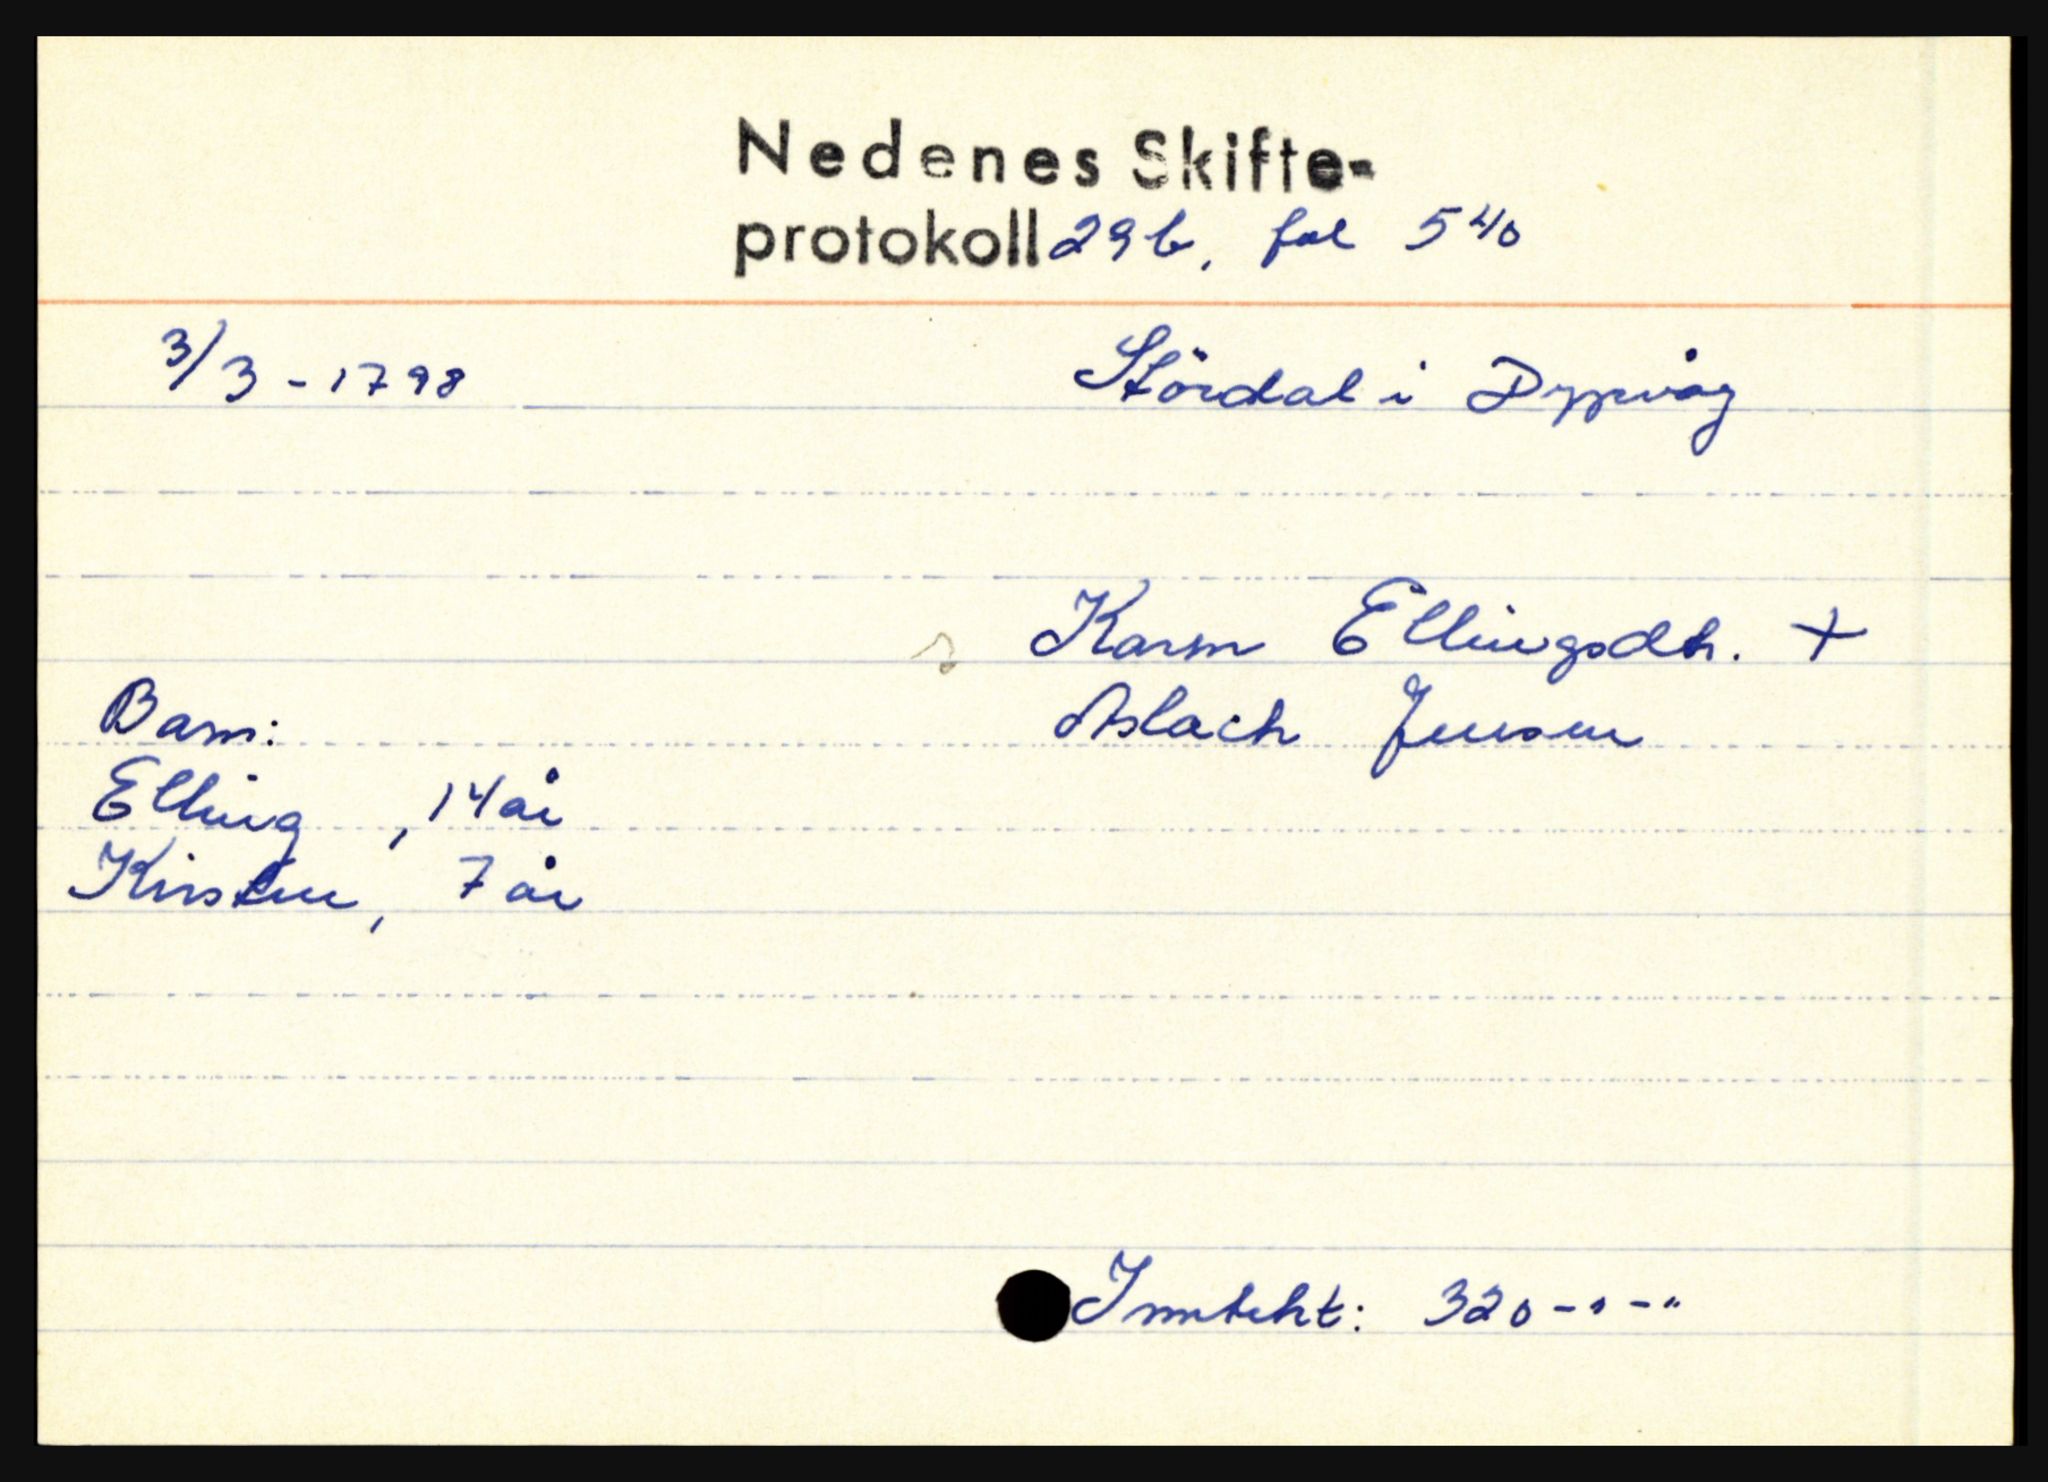 Nedenes Skifte-
protokoll 29b, fol 540
3/3 - 1798
Stördal i Dypvåg
Karen Ellingsdtr. +
Aslach Jensen
Barn:
Elling , 14 år
Kirsten, 7 år
Inntekt: 320-"-"